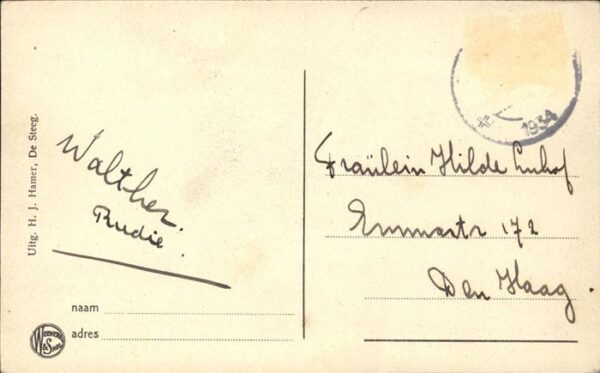 1934
Uitg. H. J. Hamer, De Steeg.
Walther.
Rudie.
Fräulein Hilde Imhof
Emmastr 172
Den Haag.
naam
adres
W&S